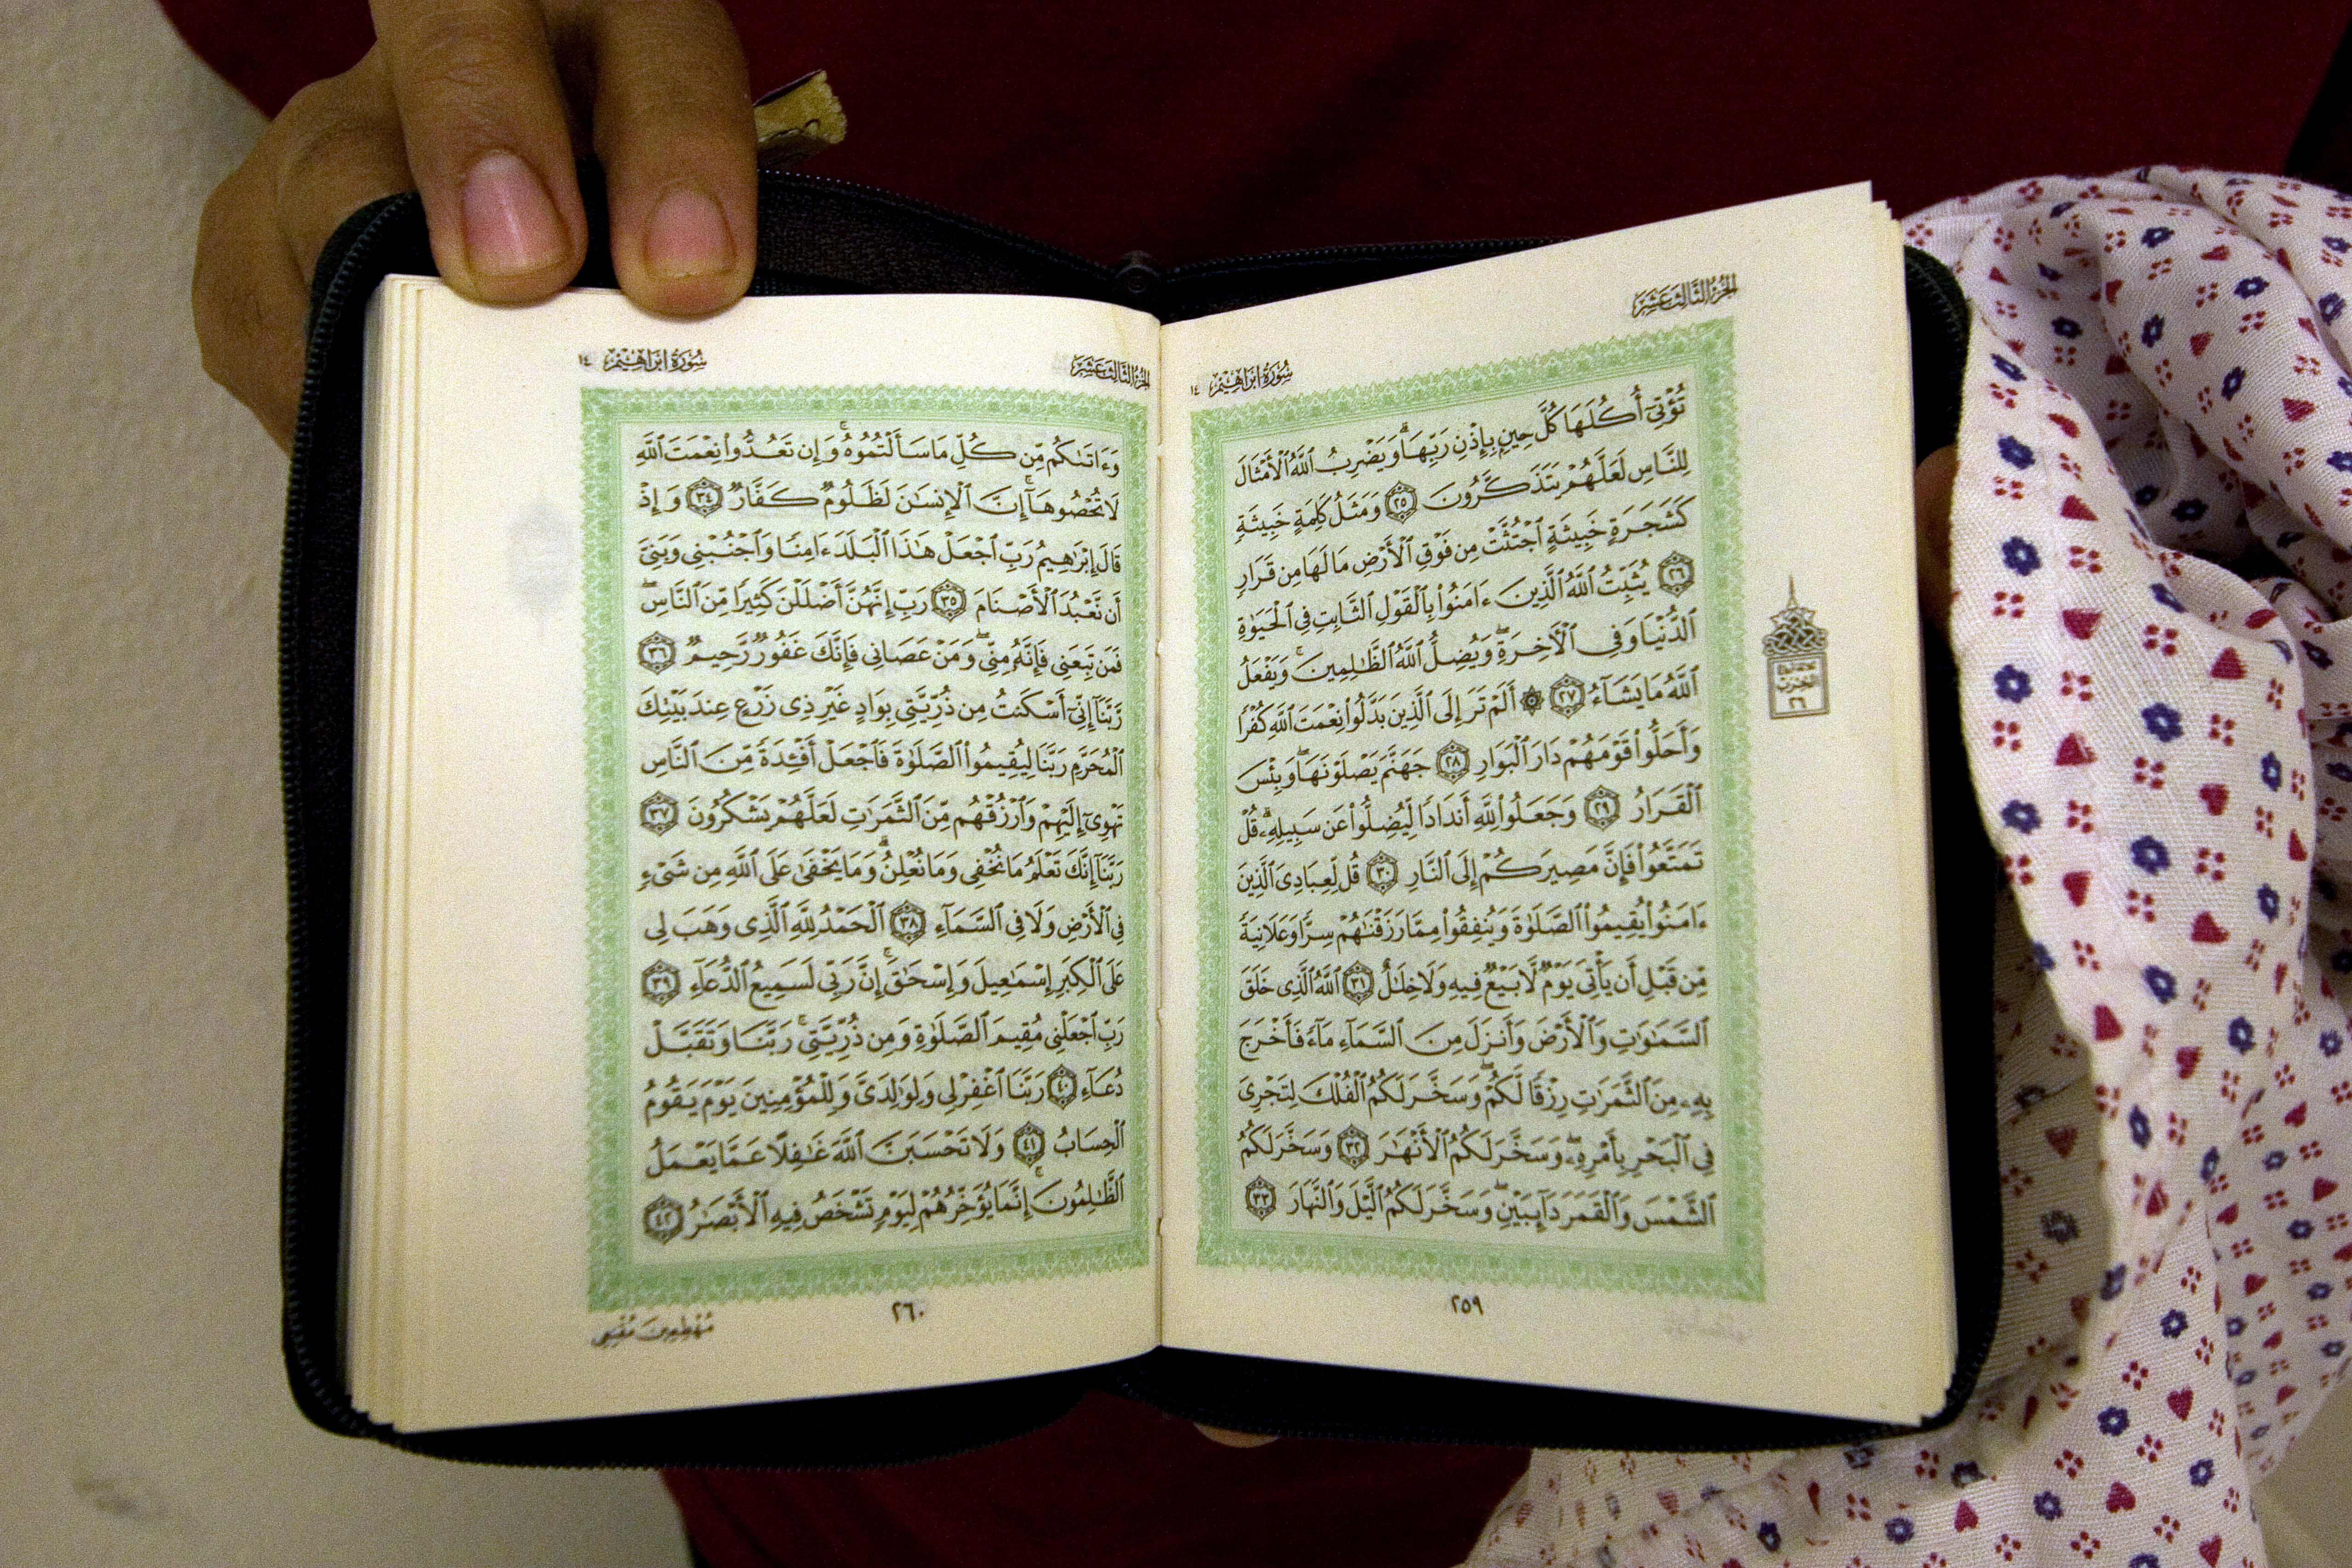 الجزء الثالث عشر
سورة ابراهيم ١٤
تُؤْتِىٓ أُكُلَهَا كُلَّ حِينٍۭ بِإِذْنِ رَبِّهَاۗ وَيَضْرِبُ ٱللَّهُ ٱلْأَمْثَالَ
لِلنَّاسِ لَعَلَّهُمْ يَتَذَكَّرُونَ ٢٥ وَمَثَلُ كَلِمَةٍ خَبِيثَةٍ
كَشَجَرَةٍ خَبِيثَةٍ ٱجْتُثَّتْ مِن فَوْقِ ٱلْأَرْضِ مَا لَهَا مِن قَرَارٍ
٢٦ يُثَبِّتُ ٱللَّهُ ٱلَّذِينَ ءَامَنُوا۟ بِٱلْقَوْلِ ٱلثَّابِتِ فِى ٱلْحَيَوٰةِ
ٱلدُّنْيَا وَفِى ٱلْأَخِرَةِۖ وَيُضِلُّ ٱللَّهُ ٱلظَّٰلِمِينَۚ وَيَفْعَلُ
ٱللَّهُ مَا يَشَآءُ ٢٧ ۞ أَلَمْ تَرَ إِلَى ٱلَّذِينَ بَدَّلُوا۟ نِعْمَتَ ٱللَّهِ كُفْرًا
وَأَحَلُّوا۟ قَوْمَهُمْ دَارَ ٱلْبَوَارِ ٢٨ جَهَنَّمَ يَصْلَوْنَهَاۖ وَبِئْسَ
ٱلْقَرَارُ ٢٩ وَجَعَلُوا۟ لِلَّهِ أَندَادًا لِّيُضِلُّوا۟ عَن سَبِيلِهِۦۗ قُلْ
تَمَتَّعُوا۟ فَإِنَّ مَصِيرَكُمْ إِلَى ٱلنَّارِ ٣٠ قُل لِّعِبَادِىَ ٱلَّذِينَ
ءَامَنُوا۟ يُقِيمُوا۟ ٱلصَّلَوٰةَ وَيُنفِقُوا۟ مِمَّا رَزَقْنَٰهُمْ سِرًّا وَعَلَانِيَةً
مِّن قَبْلِ أَن يَأْتِىَ يَوْمٌ لَّا بَيْعٌ فِيهِ وَلَا خِلَٰلٌ ٣١ ٱللَّهُ ٱلَّذِى خَلَقَ
ٱلسَّمَٰوَٰتِ وَٱلْأَرْضَ وَأَنزَلَ مِنَ ٱلسَّمَآءِ مَآءً فَأَخْرَجَ
بِهِۦ مِنَ ٱلثَّمَرَٰتِ رِزْقًا لَّكُمْۖ وَسَخَّرَ لَكُمُ ٱلْفُلْكَ لِتَجْرِىَ
فِى ٱلْبَحْرِ بِأَمْرِهِۦۖ وَسَخَّرَ لَكُمُ ٱلْأَنْهَٰرَ ٣٢ وَسَخَّرَ لَكُمُ
ٱلشَّمْسَ وَٱلْقَمَرَ دَآئِبَيْنِۖ وَسَخَّرَ لَكُمُ ٱلَّيْلَ وَٱلنَّهَارَ ٣٣
الحزب
٢٦
٢٥٩
الجزء الثالث عشر
سورة ابراهيم ١٤
وَءَاتَىٰكُم مِّن كُلِّ مَا سَأَلْتُمُوهُۚ وَإِن تَعُدُّوا۟ نِعْمَتَ ٱللَّهِ
لَا تُحْصُوهَآۗ إِنَّ ٱلْإِنسَٰنَ لَظَلُومٌ كَفَّارٌ ٣٤ وَإِذْ
قَالَ إِبْرَٰهِيمُ رَبِّ ٱجْعَلْ هَٰذَا ٱلْبَلَدَ ءَامِنًا وَٱجْنُبْنِى وَبَنِىَّ
أَن نَّعْبُدَ ٱلْأَصْنَامَ ٣٥ رَبِّ إِنَّهُنَّ أَضْلَلْنَ كَثِيرًا مِّنَ ٱلنَّاسِۖ
فَمَن تَبِعَنِى فَإِنَّهُۥ مِنِّىۖ وَمَنْ عَصَانِى فَإِنَّكَ غَفُورٌ رَّحِيمٌ ٣٦
رَّبَّنَآ إِنِّىٓ أَسْكَنتُ مِن ذُرِّيَّتِى بِوَادٍ غَيْرِ ذِى زَرْعٍ عِندَ بَيْتِكَ
ٱلْمُحَرَّمِ رَبَّنَا لِيُقِيمُوا۟ ٱلصَّلَوٰةَ فَٱجْعَلْ أَفْـِٔدَةً مِّنَ ٱلنَّاسِ
تَهْوِىٓ إِلَيْهِمْ وَٱرْزُقْهُم مِّنَ ٱلثَّمَرَٰتِ لَعَلَّهُمْ يَشْكُرُونَ ٣٧
رَبَّنَآ إِنَّكَ تَعْلَمُ مَا نُخْفِى وَمَا نُعْلِنُۗ وَمَا يَخْفَىٰ عَلَى ٱللَّهِ مِن شَىْءٍ
فِى ٱلْأَرْضِ وَلَا فِى ٱلسَّمَآءِ ٣٨ ٱلْحَمْدُ لِلَّهِ ٱلَّذِى وَهَبَ لِى
عَلَى ٱلْكِبَرِ إِسْمَٰعِيلَ وَإِسْحَٰقَۚ إِنَّ رَبِّى لَسَمِيعُ ٱلدُّعَآءِ ٣٩
رَبِّ ٱجْعَلْنِى مُقِيمَ ٱلصَّلَوٰةِ وَمِن ذُرِّيَّتِىۚ رَبَّنَا وَتَقَبَّلْ
دُعَآءِ ٤٠ رَبَّنَا ٱغْفِرْ لِى وَلِوَٰلِدَىَّ وَلِلْمُؤْمِنِينَ يَوْمَ يَقُومُ
ٱلْحِسَابُ ٤١ وَلَا تَحْسَبَنَّ ٱللَّهَ غَٰفِلًا عَمَّا يَعْمَلُ
ٱلظَّٰلِمُونَۚ إِنَّمَا يُؤَخِّرُهُمْ لِيَوْمٍ تَشْخَصُ فِيهِ ٱلْأَبْصَٰرُ ٤٢
مُهْطِعِينَ مُقْنِعِى
٢٦٠